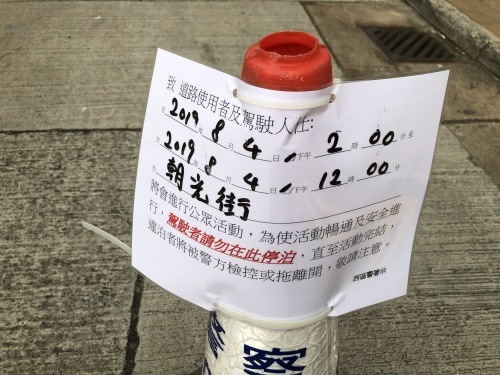 致 道路使用者及駕駛人仕:
於 2019 年 8 月 4 日 下午 2 時 00 分至
於 2019 年 8 月 4 日 下午 12 時 00 分
朝光街
將會進行公眾活動，為使活動暢通及安全進
行，駕駛者請勿在此停泊，直至活動完結，
違泊者將被警方檢控或拖離開，敬請注意。
西區警署示
警察